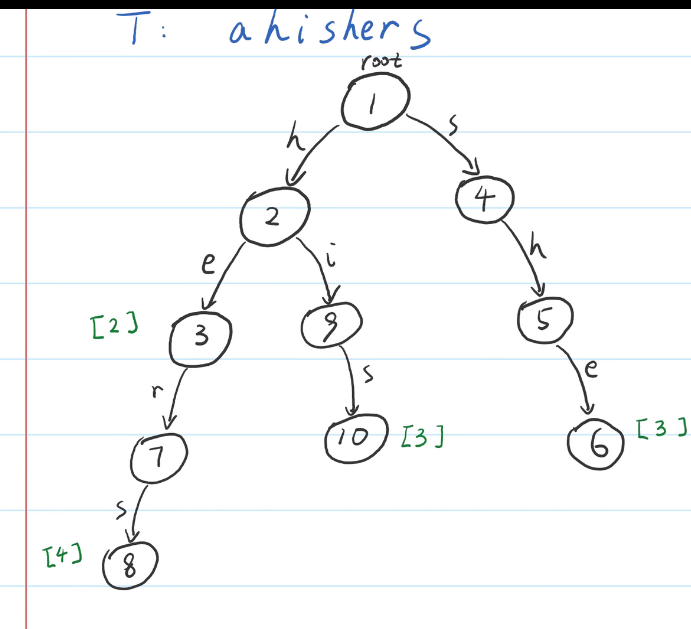 T: ahishers
root
1
h s
2 4
e i h
[2] 3 9 5
r s e
7 10 [3] 6 [3]
s
[4] 8